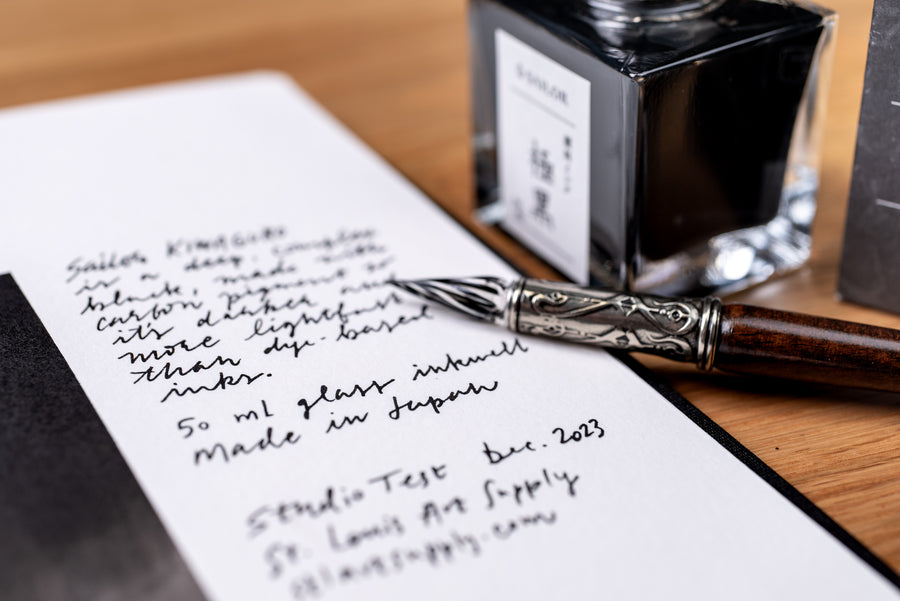 SAILOR
極黒
Sailor KIWAGURO
is a deep, complex
black, made with
carbon pigment so
it's darker and
more lightfast
than dye-based
inks.
50 ml glass inkwell
made in Japan
Studio Test Dec. 2023
St. Louis Art Supply